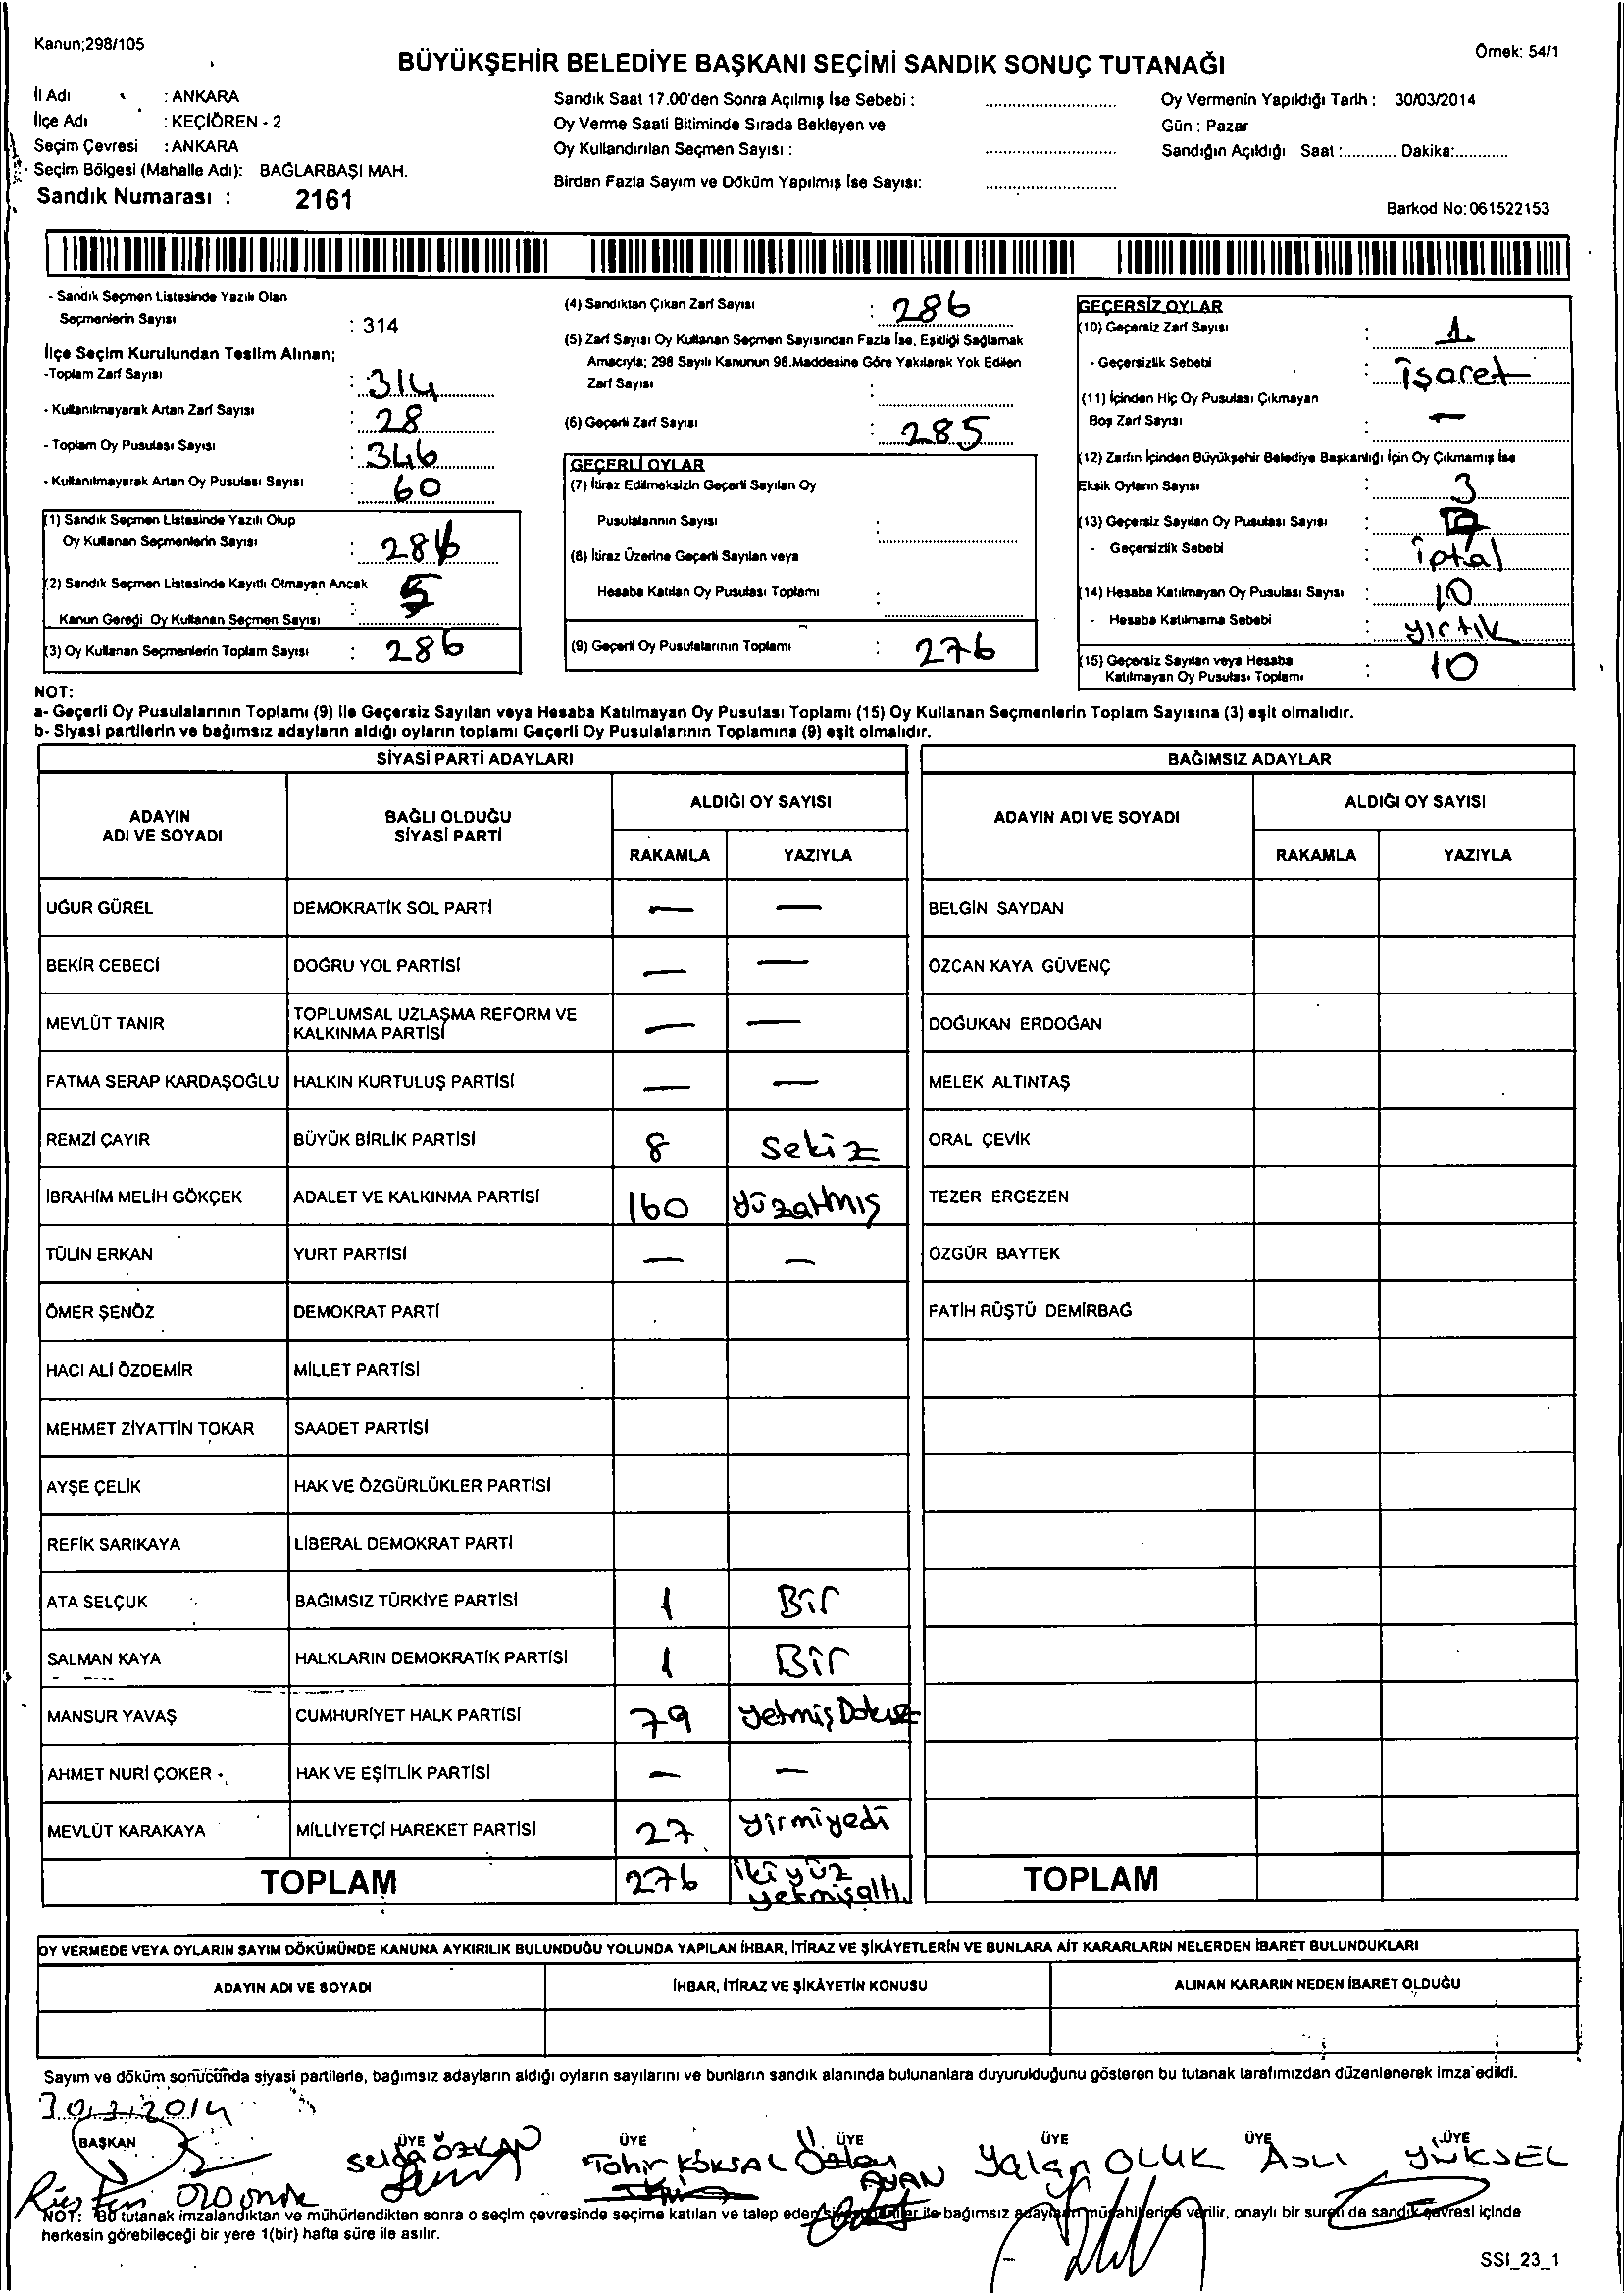 Kanun;298/105
Örnek: 54/1
BÜYÜKŞEHİR BELEDİYE BAŞKANI SEÇİMİ SANDIK SONUÇ TUTANAĞI
İl Adı : ANKARA
İlçe Adı : KEÇİÖREN - 2
Seçim Çevresi : ANKARA
Seçim Bölgesi (Mahalle Adı): BAĞLARBAŞI MAH.
Sandık Numarası : 2161
Sandık Saat 17.00'den Sonra Açılmış İse Sebebi :
Oy Verme Saati Bitiminde Sırada Bekleyen ve
Oy Kullandırılan Seçmen Sayısı :
Birden Fazla Sayım ve Döküm Yapılmış İse Sayısı:
Oy Vermenin Yapıldığı Tarih : 30/03/2014
Gün : Pazar
Sandığın Açıldığı Saat :............ Dakika:............
Barkod No: 061522153
- Sandık Seçmen Listesinde Yazılı Olan
Seçmenlerin Sayısı : 314
İlçe Seçim Kurulundan Teslim Alınan;
-Toplam Zarf Sayısı : 314
- Kullanılmayarak Artan Zarf Sayısı : 28
- Toplam Oy Pusulası Sayısı : 346
- Kullanılmayarak Artan Oy Pusulası Sayısı : 60
(1) Sandık Seçmen Listesinde Yazılı Olup
Oy Kullanan Seçmenlerin Sayısı : 286
(2) Sandık Seçmen Listesinde Kayıtlı Olmayan Ancak
Kanun Gereği Oy Kullanan Seçmen Sayısı : 5
(3) Oy Kullanan Seçmenlerin Toplam Sayısı : 286
(4) Sandıktan Çıkan Zarf Sayısı : 286
(5) Zarf Sayısı Oy Kullanan Seçmen Sayısından Fazla İse, Eşitliği Sağlamak
Amacıyla; 298 Sayılı Kanunun 98.Maddesine Göre Yakılarak Yok Edilen
Zarf Sayısı :
(6) Geçerli Zarf Sayısı : 285
GEÇERLİ OYLAR
(7) İtiraz Edilmeksizin Geçerli Sayılan Oy
Pusulalarının Sayısı :
(8) İtiraz Üzerine Geçerli Sayılan veya
Hesaba Katılan Oy Pusulası Toplamı :
(9) Geçerli Oy Pusulalarının Toplamı : 276
GEÇERSİZ OYLAR
(10) Geçersiz Zarf Sayısı : 1
- Geçersizlik Sebebi : işaret
(11) İçinden Hiç Oy Pusulası Çıkmayan
Boş Zarf Sayısı : —
(12) Zarfın İçinden Büyükşehir Belediye Başkanlığı İçin Oy Çıkmamış İse
Eksik Oyların Sayısı : 3
(13) Geçersiz Sayılan Oy Pusulası Sayısı :
- Geçersizlik Sebebi : iptal
(14) Hesaba Katılmayan Oy Pusulası Sayısı : 10
- Hesaba Katılmama Sebebi : yırtık
(15) Geçersiz Sayılan veya Hesaba
Katılmayan Oy Pusulası Toplamı : 10
NOT:
a- Geçerli Oy Pusulalarının Toplamı (9) ile Geçersiz Sayılan veya Hesaba Katılmayan Oy Pusulası Toplamı (15) Oy Kullanan Seçmenlerin Toplam Sayısına (3) eşit olmalıdır.
b- Siyasi partilerin ve bağımsız adayların aldığı oyların toplamı Geçerli Oy Pusulalarının Toplamına (9) eşit olmalıdır.
SİYASİ PARTİ ADAYLARI BAĞIMSIZ ADAYLAR
ADAYIN ADI VE SOYADI BAĞLI OLDUĞU SİYASİ PARTİ ALDIĞI OY SAYISI ADAYIN ADI VE SOYADI ALDIĞI OY SAYISI
RAKAMLA YAZIYLA RAKAMLA YAZIYLA
UĞUR GÜREL DEMOKRATİK SOL PARTİ — — BELGİN SAYDAN
BEKİR CEBECİ DOĞRU YOL PARTİSİ — — ÖZCAN KAYA GÜVENÇ
MEVLÜT TANIR TOPLUMSAL UZLAŞMA REFORM VE KALKINMA PARTİSİ — — DOĞUKAN ERDOĞAN
FATMA SERAP KARDAŞOĞLU HALKIN KURTULUŞ PARTİSİ — — MELEK ALTINTAŞ
REMZİ ÇAYIR BÜYÜK BİRLİK PARTİSİ 8 Sekiz ORAL ÇEVİK
İBRAHİM MELİH GÖKÇEK ADALET VE KALKINMA PARTİSİ 160 yüzatmış TEZER ERGEZEN
TÜLİN ERKAN YURT PARTİSİ — — ÖZGÜR BAYTEK
ÖMER ŞENÖZ DEMOKRAT PARTİ FATİH RÜŞTÜ DEMİRBAĞ
HACI ALİ ÖZDEMİR MİLLET PARTİSİ
MEHMET ZİYATTİN TOKAR SAADET PARTİSİ
AYŞE ÇELİK HAK VE ÖZGÜRLÜKLER PARTİSİ
REFİK SARIKAYA LİBERAL DEMOKRAT PARTİ
ATA SELÇUK BAĞIMSIZ TÜRKİYE PARTİSİ 1 Bir
SALMAN KAYA HALKLARIN DEMOKRATİK PARTİSİ 1 Bir
MANSUR YAVAŞ CUMHURİYET HALK PARTİSİ 79 yetmiş Dokuz
AHMET NURİ ÇOKER HAK VE EŞİTLİK PARTİSİ — —
MEVLÜT KARAKAYA MİLLİYETÇİ HAREKET PARTİSİ 27 yirmiyedi
TOPLAM 276 ikiyüz yetmişaltı. TOPLAM
OY VERMEDE VEYA OYLARIN SAYIM DÖKÜMÜNDE KANUNA AYKIRILIK BULUNDUĞU YOLUNDA YAPILAN İHBAR, İTİRAZ VE ŞİKÂYETLERİN VE BUNLARA AİT KARARLARIN NELERDEN İBARET BULUNDUKLARI
ADAYIN ADI VE SOYADI İHBAR, İTİRAZ VE ŞİKÂYETİN KONUSU ALINAN KARARIN NEDEN İBARET OLDUĞU
Sayım ve döküm sonucunda siyasi partilerle, bağımsız adayların aldığı oyların sayılarını ve bunların sandık alanında bulunanlara duyurulduğunu gösteren bu tutanak tarafımızdan düzenlenerek imza edildi.
30/3/2014
BAŞKAN ÜYE ÜYE ÜYE ÜYE ÜYE ÜYE
Selda ÖZKAN Tahir KÖKSAL AYAN OLUK ASLI YÜKSEL
NOT: Bu tutanak imzalandıktan ve mühürlendikten sonra o seçim çevresinde seçime katılan ve talep eden ile bağımsız adayların müşahitlerine verilir, onaylı bir sureti de sandık çevresi içinde
herkesin görebileceği bir yere 1(bir) hafta süre ile asılır.
SSI_23_1